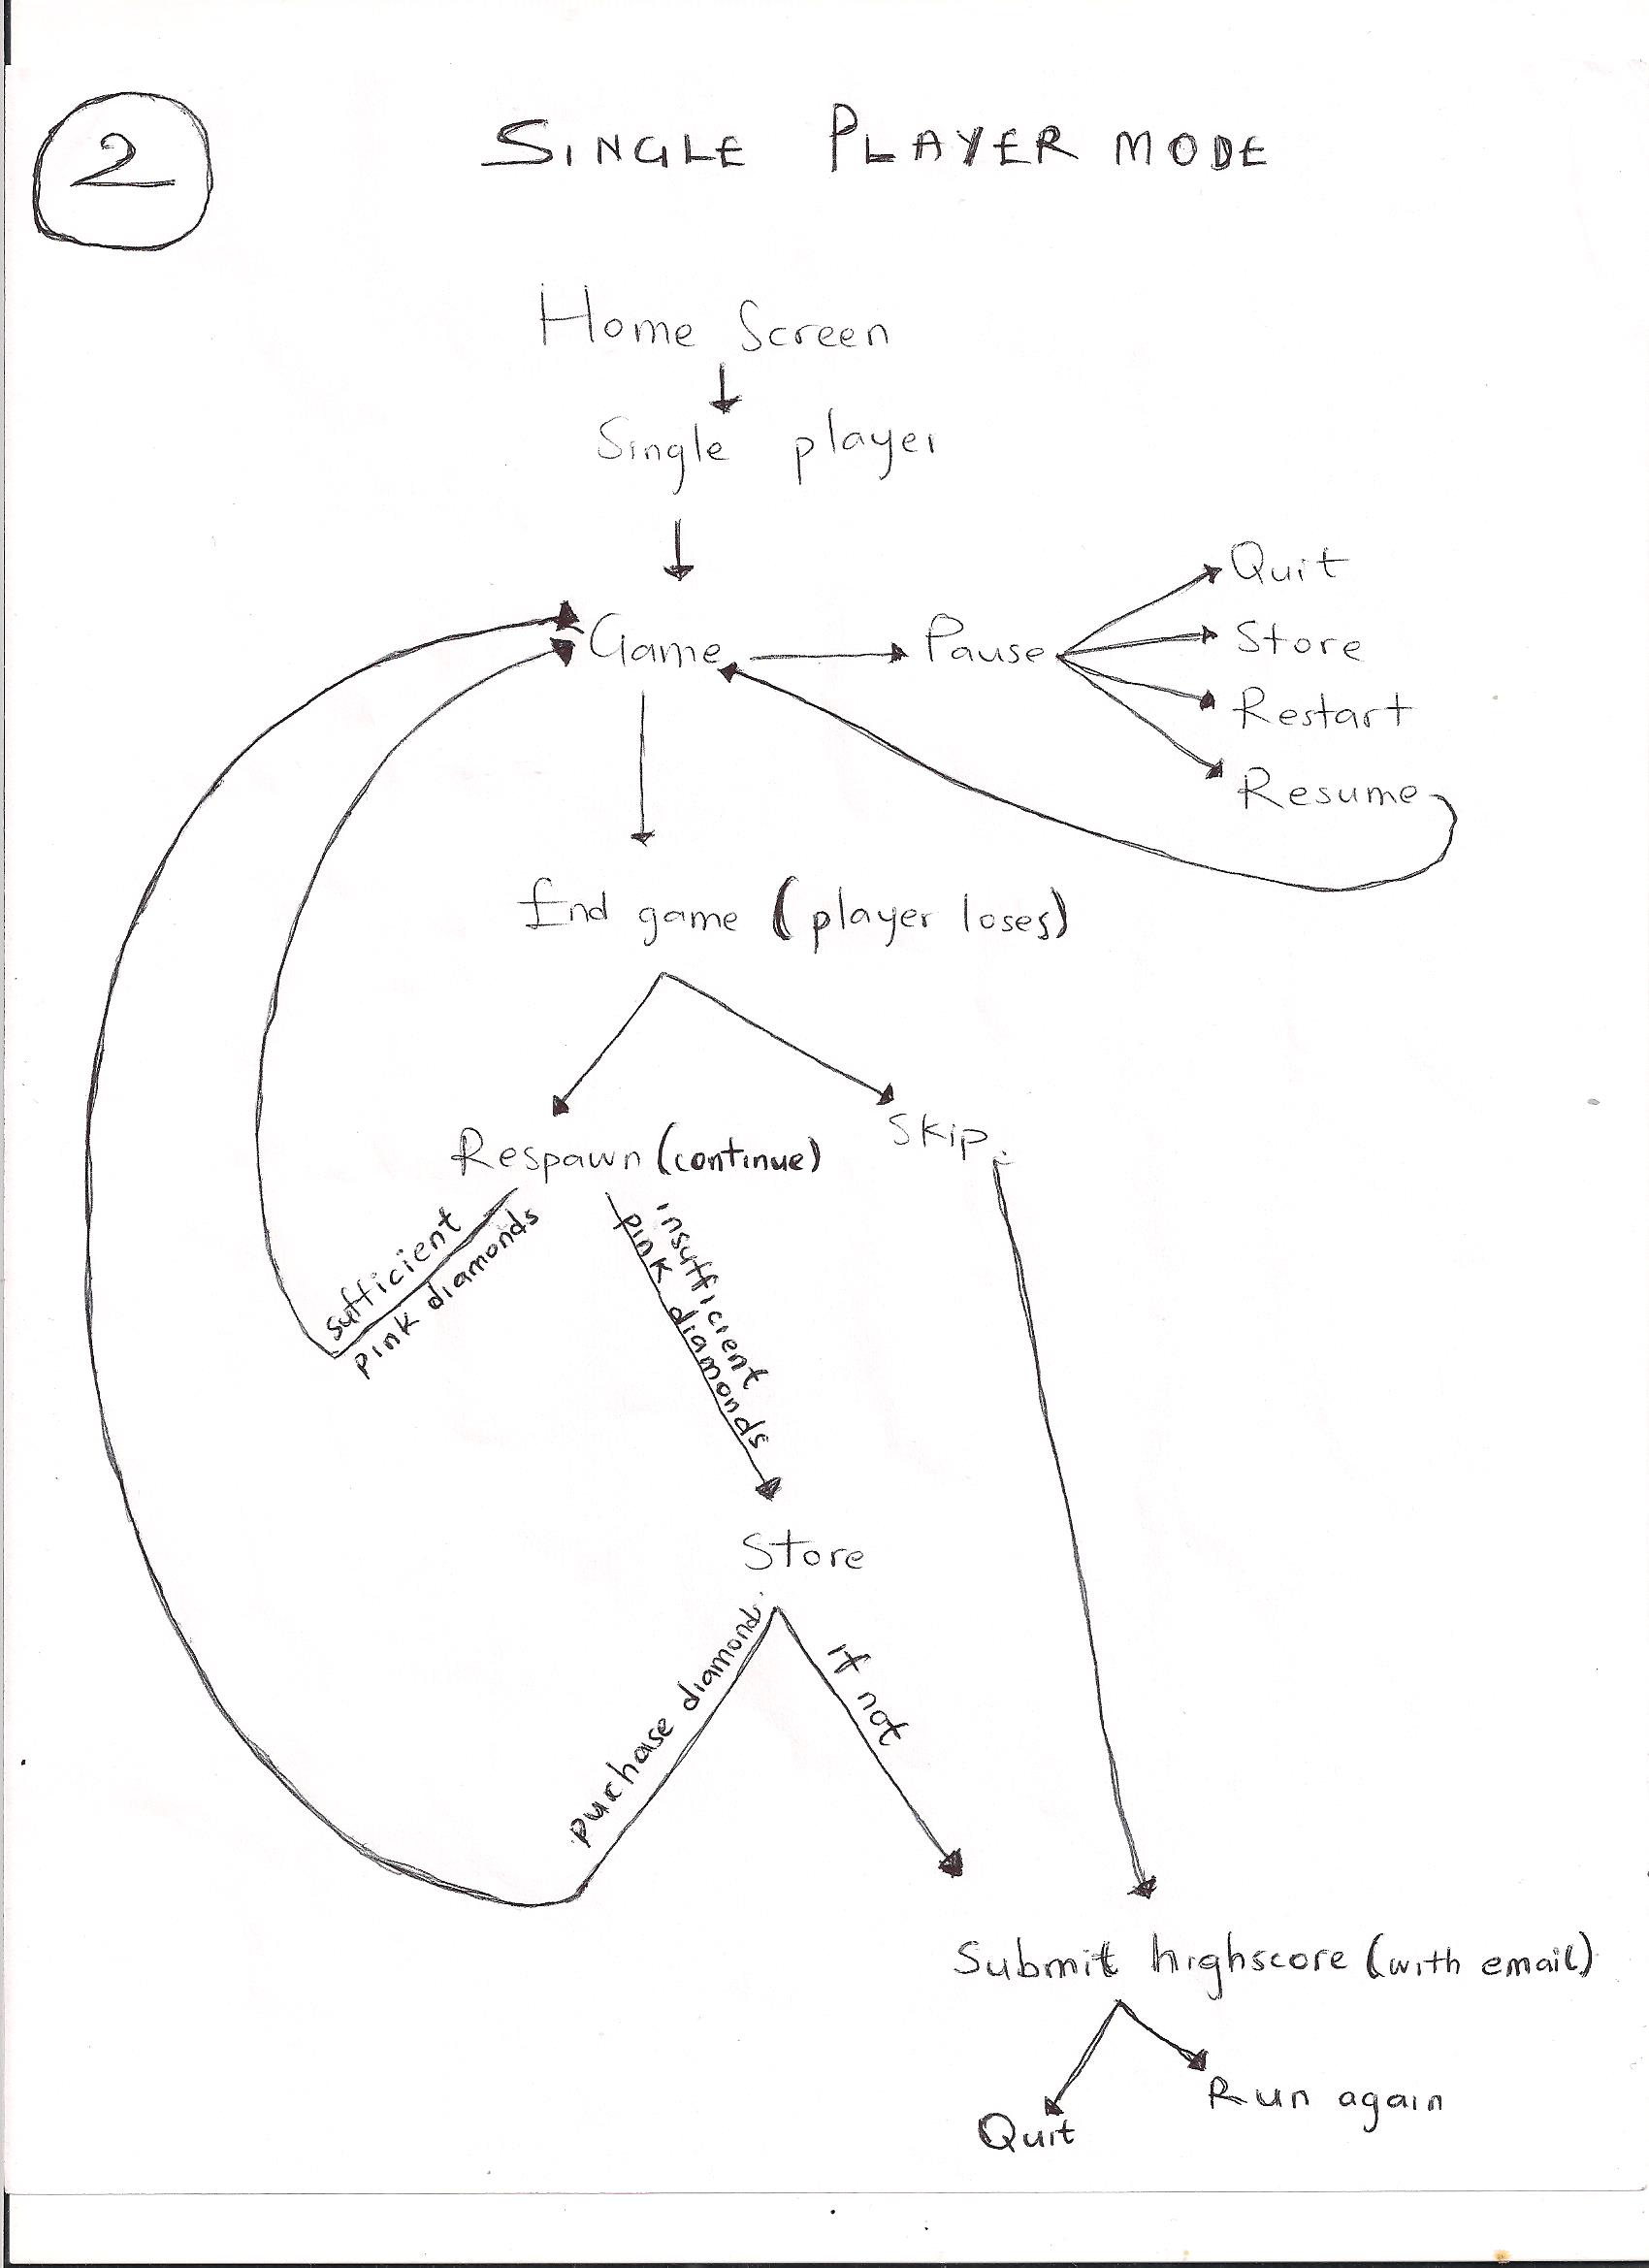 2
SINGLE PLAYER MODE
Home Screen
Single player
Game
Pause
Quit
Store
Restart
Resume
End game (player loses)
Respawn (continue)
Skip
sufficient
pink diamonds
insufficient
pink diamonds
Store
puchase diamonds
If not
Submit highscore (with email)
Quit
Run again